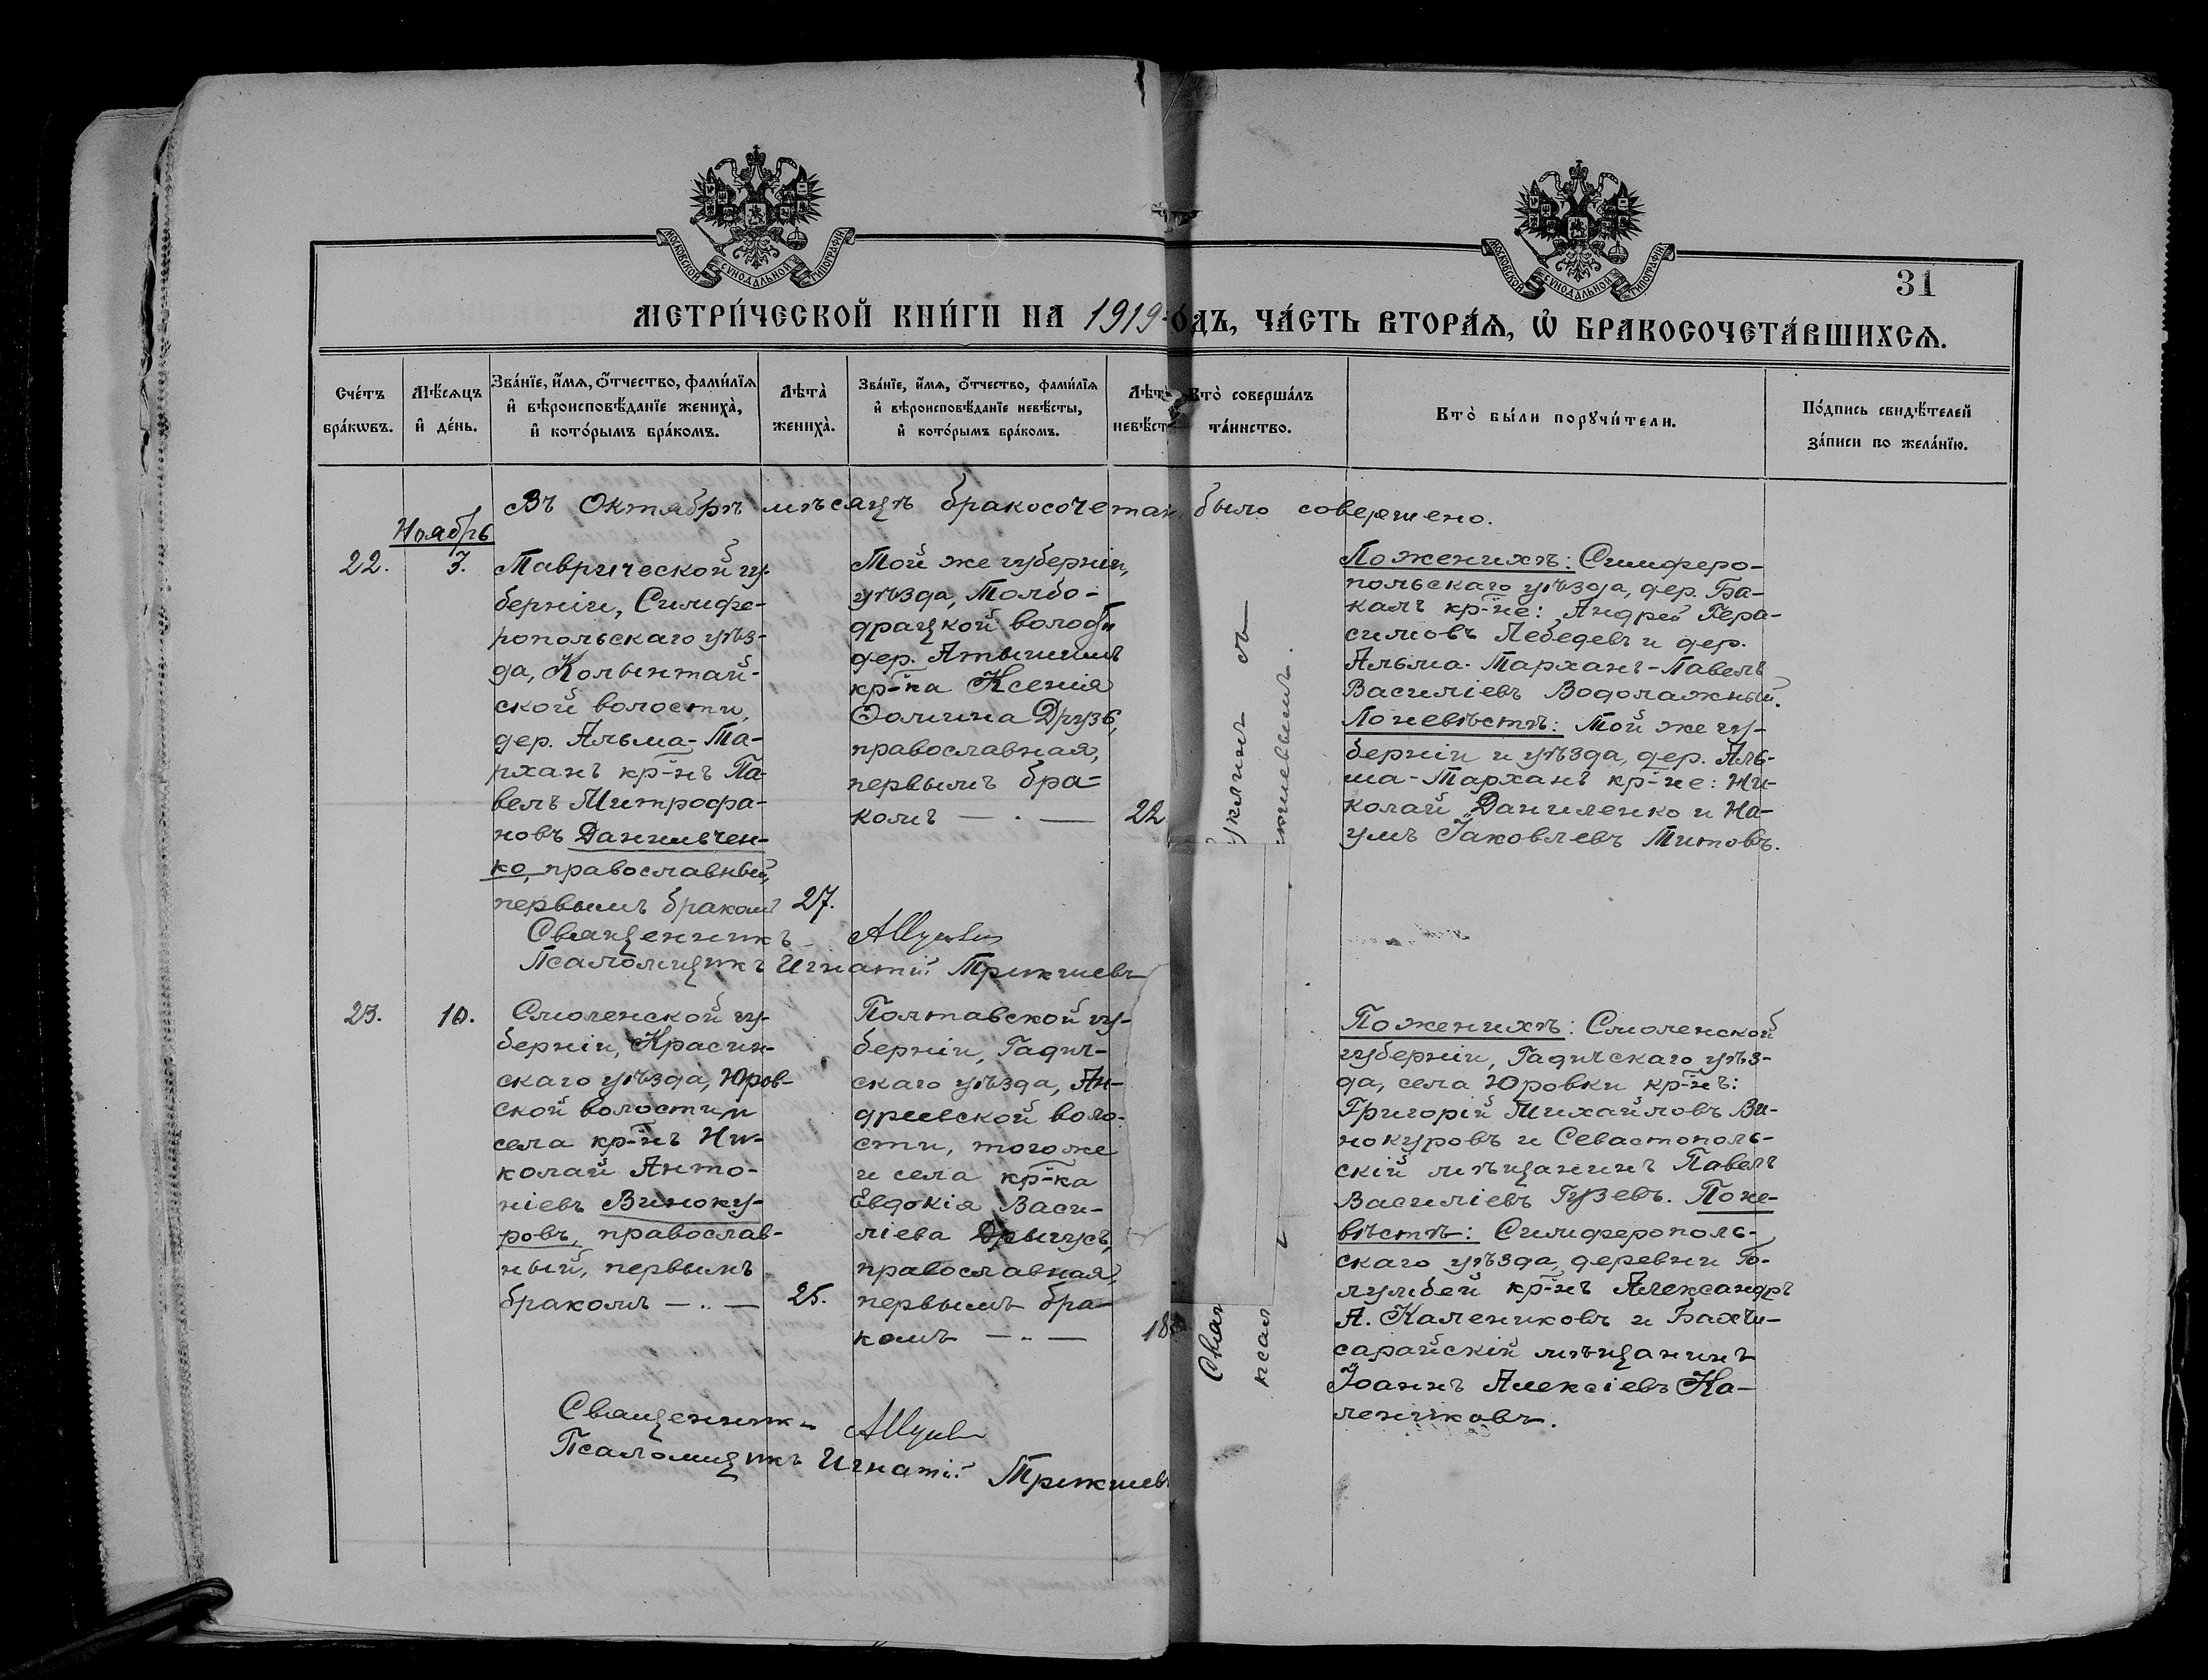 МОСКОВСКОЙ СУНОДАЛЬНОЙ ТИПОГРАФІИ
МОСКОВСКОЙ СУНОДАЛЬНОЙ ТИПОГРАФІИ
31
МЕТРИ́ЧЕСКОЙ КНИ́ГИ НА 1919 ОДЪ, ЧА́СТЬ ВТОРА́Ѧ, Ѽ БРАКОСОЧЕТА́ВШИХСѦ.
Сче́тъ
бра́кѡвъ.
Мѣ́сѧцъ
и҆ де́нь.
Зва́нїе, и҆́мѧ, ѻ҆́тчество, фами́лїѧ
и҆ вѣроисповѣ́данїе жениха̀,
и҆ кото́рымъ бра́комъ.
Лѣта̀
жениха̀.
Зва́нїе, и҆́мѧ, ѻ҆́тчество, фами́лїѧ
и҆ вѣроисповѣ́данїе невѣ́сты,
и҆ кото́рымъ бра́комъ.
Лѣт
невѣ́ст
Кто̀ соверша́лъ
та́инство.
Кто̀ бы́ли порꙋчи́тели.
По́дпись свидѣ́телей
за́писи по жела́нїю.
Въ Октябрѣ мѣсяцѣ бракосочетан было совершено.
Ноябрь
22.
3.
Таврической гу-
берніи, Симфе-
ропольскаго уѣз-
да, Колынтай-
ской волости,
дер. Альма-Та-
рханъ кр-нъ Па-
велъ Митрофа-
новъ Данильчен-
ко, православный,
первымъ бракомъ
27.
Той же губерніи,
уѣзда, Толбо-
драцкой волости
дер.
кр-ка Ксенія
Ѳомина Друзь,
православная,
первымъ бра-
комъ — . —
22
По женихѣ: Симферо-
польскаго уѣзда, дер. Ба-
калъ кр-не: Андрей Гера-
симовъ Лебедевъ и дер.
Альма-Тарханъ-Павелъ
Василіевъ Водолажный.
По невѣстѣ: Той же гу-
берніи и уѣзда, дер. Аль-
ма-Тарханъ кр-не: Ни-
колай Даниленко и На-
умъ Іаковлевъ Титовъ.
Священникъ
Псаломщикъ Игнатій
23.
10.
Смоленской гу-
берніи, Красин-
скаго уѣзда, Юров-
ской волости и
села кр-нъ Ни-
колай Анто-
ніевъ Виноку-
ровъ, православ-
ный, первымъ
бракомъ — .. —
25.
Полтавской гу-
берніи, Гадяч-
скаго уѣзда, Ан-
дреевской воло-
сти, тогоже
и села кр-ка
Евдокія Васи-
ліева
православная,
первымъ бра-
комъ — .. —
18
Свящ
псал
По женихѣ: Смоленской
губерніи, Гадячскаго уѣз-
да, села Юровки кр-нъ:
Григорій Михайловъ Ви-
нокуровъ и Севастополь-
скій мѣщанинъ Павелъ
Василіевъ Гузевъ. По не-
вѣстѣ: Симферополь-
скаго уѣзда, деревни Го-
лумбей кр-нъ Александръ
А. Калениковъ и Бахчи-
сарайскій мѣщанинъ
Іоаннъ Алексіевъ Ка-
лениковъ.
Священникъ
Псаломщикъ Игнатій